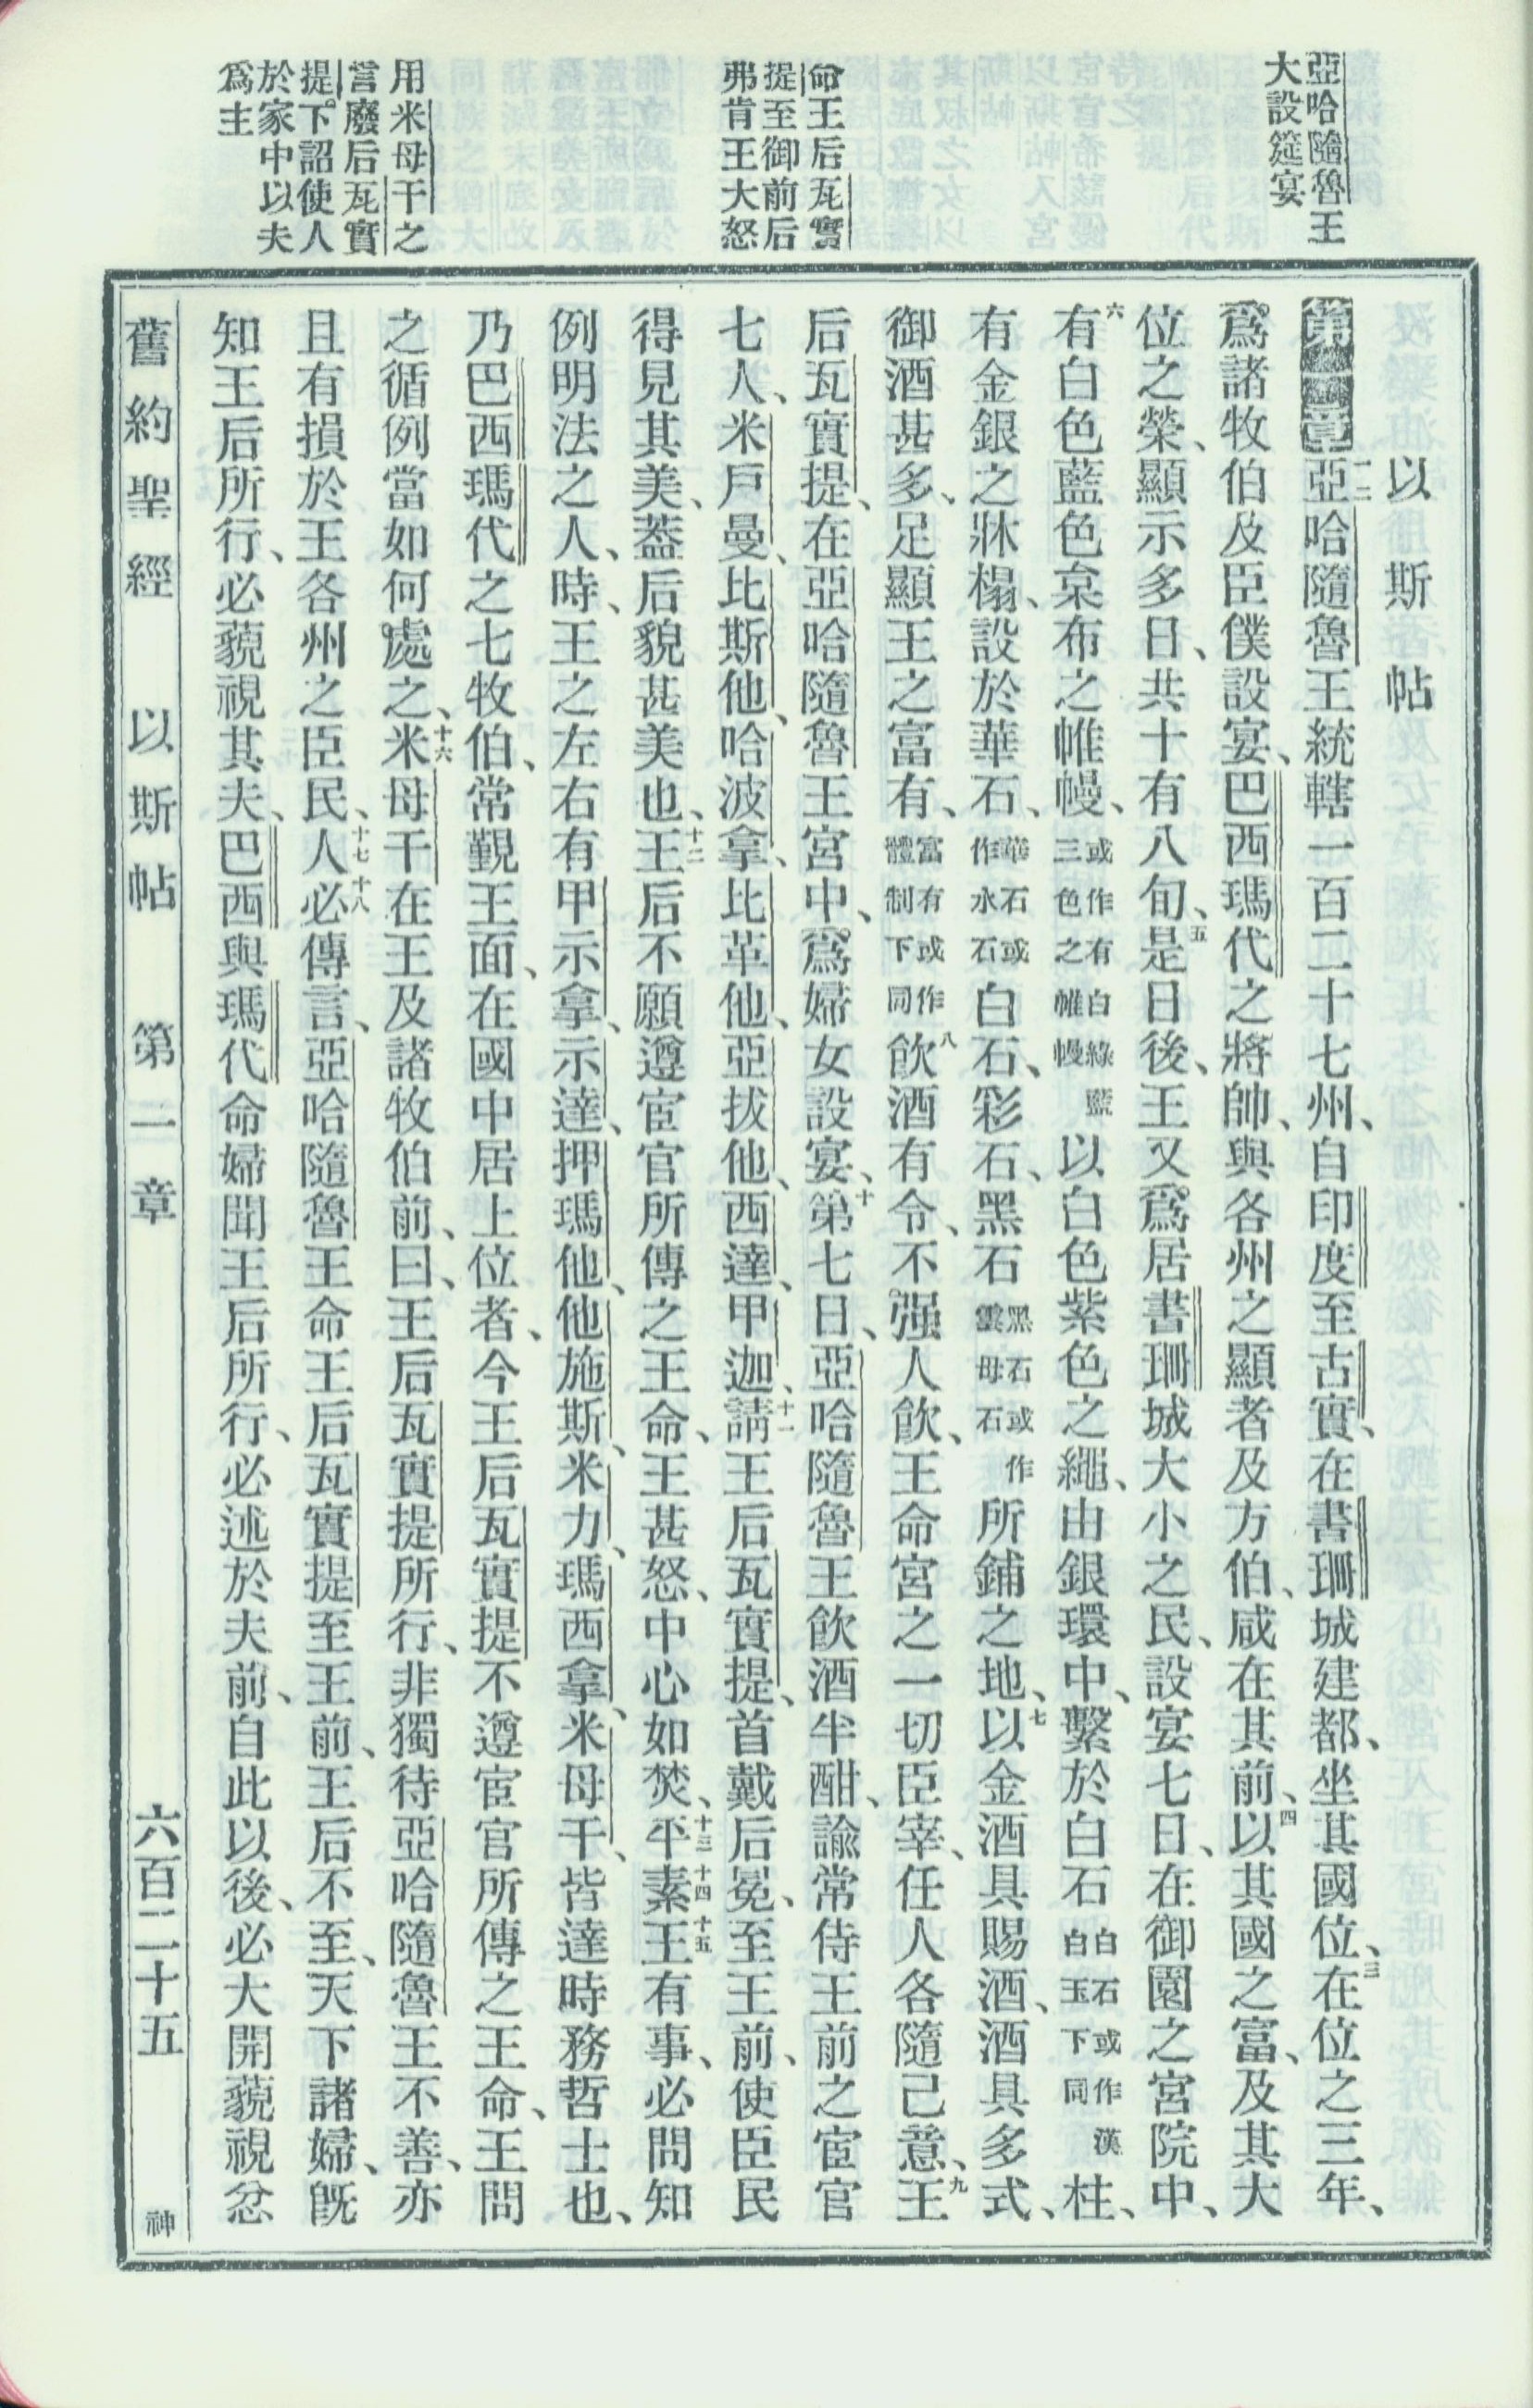 亞哈隨魯王
大設筵宴
命王后瓦實
提至御前后
弗肯王大怒
用米母干之
言廢后瓦實
提下詔使人
於家中以夫
爲主
以斯帖
第一章 一二亞哈隨魯王統轄一百二十七州、自印度至古實、在書珊城建都、坐其國位、三在位之三年、
爲諸牧伯及臣僕設宴、巴西瑪代之將帥、與各州之顯者及方伯、咸在其前、四以其國之富、及其大
位之榮、顯示多日、共十有八旬、五是日後、王又爲居書珊城大小之民、設宴七日、在御園之宮院中、
六有白色藍色枲布之帷幔、或作有白綠藍三色之帷幔以白色紫色之繩、由銀環中、繫於白石白石或作漢白玉下同柱、
有金銀之牀榻、設於華石、華石或作水石白石、彩石、黑石黑石或作雲母石所鋪之地、七以金酒具賜酒、酒具多式、
御酒甚多、足顯王之富有、富有或作體制下同八飲酒有令、不强人飲、王命宮之一切臣宰、任人各隨己意、九王
后瓦實提、在亞哈隨魯王宮中、爲婦女設宴、十第七日、亞哈隨魯王飲酒半酣、諭常侍王前之宦官
七人、米戶曼、比斯他、哈波拿、比革他、亞拔他、西達、甲迦、十一請王后瓦實提、首戴后冕、至王前、使臣民
得見其美、蓋后貌甚美也、十二王后不願遵宦官所傳之王命、王甚怒、中心如焚、十三平十四素十五王有事、必問知
例明法之人、時、王之左右有甲示拿、示達、押瑪他、他施斯、米力、瑪西拿、米母干、皆達時務哲士也、
乃巴西瑪代之七牧伯、常覲王面、在國中居上位者、今王后瓦實提不遵宦官所傳之王命、王問
之循例當如何處之、十六米母干在王及諸牧伯前、曰、王后瓦實提所行、非獨待亞哈隨魯王不善、亦
且有損於王各州之臣民、十七人十八必傳言、亞哈隨魯王命王后瓦實提至王前、王后不至、天下諸婦、旣
知王后所行、必藐視其夫、巴西與瑪代命婦聞王后所行、必述於夫前、自此以後、必大開藐視忿
舊約聖經 以斯帖 第一章 六百二十五 神